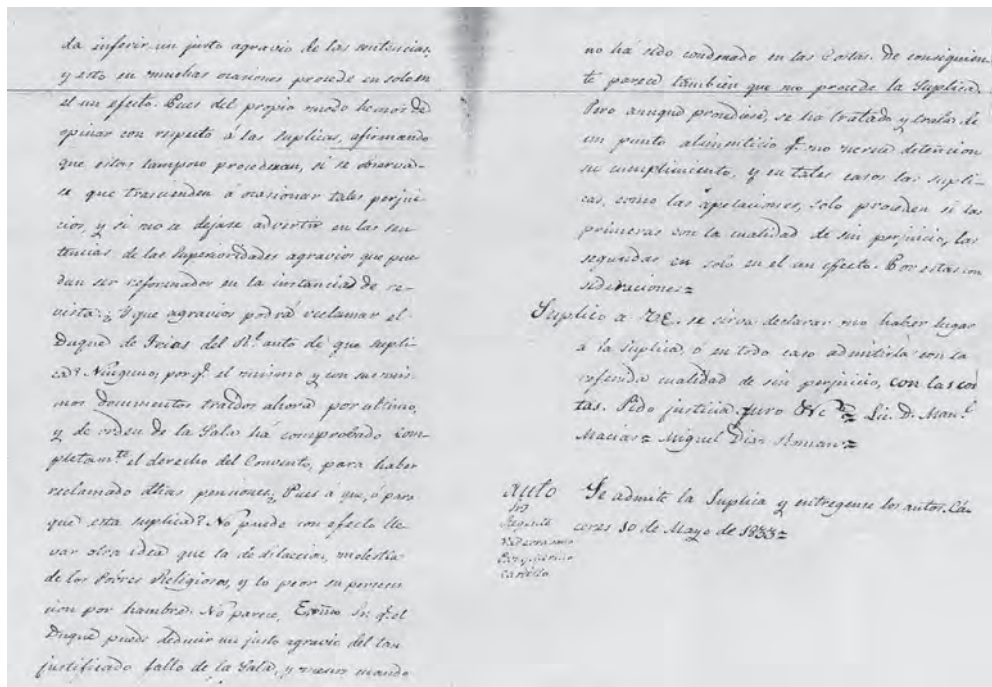 da inferir un justo agravio de las sentencias,
y esto en muchas ocasiones procede en solo en
el un efecto. Pues del propio modo hemos de
opinar con respecto á las suplicas, afirmando
que estas tampoco procederan, si se observa-
se que trascienden á ocasionar tales perjui-
cios, y si no se dejase advertir en las sen-
tencias de las Superioridades agravios que pue-
dan ser reformados en la instancia de re-
vista. ¿Y que agravios podrá reclamar el
Duque de Frias del Rl. auto de que supli-
ca? Ninguno, por q.e el mismo y con sus mis-
mos documentos traidos ahora por ultimo,
y de orden de la Sala há comprobado com-
pletam.te el derecho del Convento, para haber
reclamado dhas pensiones, Pues á que, ó para
que esta suplica? No puede con efecto lle-
var otra idea que la de dilacion, molestia
de los Pobres Religiosos, y lo peor su persecu-
cion por hambre. No parece, Exmo. Sr. q.e el
Duque puede deducir un justo agravio del tan
justificado fallo de la Sala, y menos cuando
no há sido condenado en las Costas. De consiguien-
te parece tambien que no procede la Suplica.
Pero aunque procediese, se ha tratado y trata de
un punto alimenticio q.e no merece detencion
su cumplimiento, y en tales casos las supli-
cas, como las apelaciones, solo proceden si las
primeras con la cualidad de sin perjuicio, las
segundas en solo en el un efecto. Por estas con
sideraciones=
Suplico a V.E. se sirva declarar no haber lugar
a la suplica, ó en todo caso admitirla con la
referida cualidad de sin perjuicio, con las cos
tas. Pido justicia juro &c.a= Lic. D. Man.l
Macias= Miguel Dias Roman=
Auto Se admite la Suplica y entreguense los autos. Cá-
ceres 10 de Mayo de 1833=
Sres
Regente